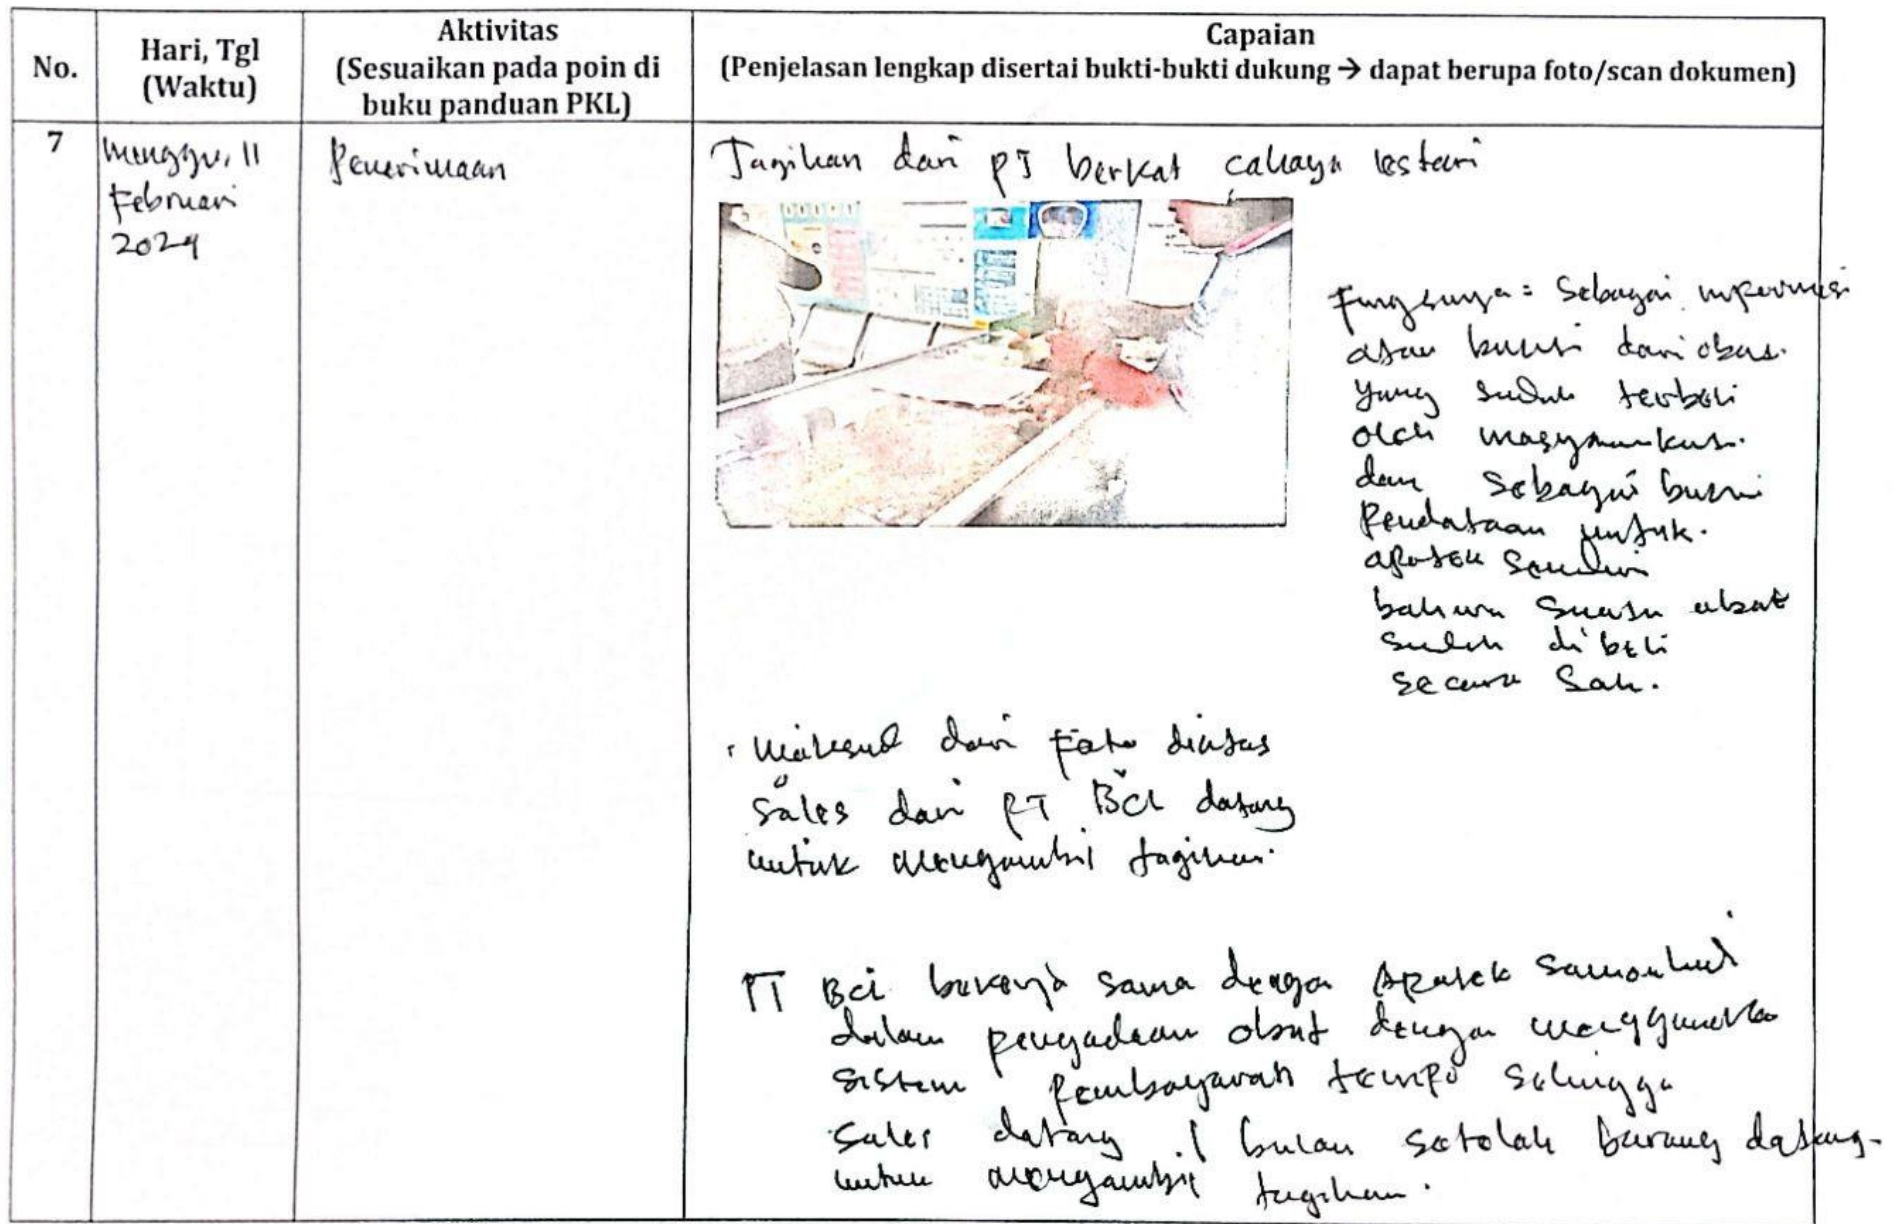 No.
Hari, Tgl
(Waktu)
Aktivitas
(Sesuaikan pada poin di
buku panduan PKL)
Capaian
(Penjelasan lengkap disertai bukti-bukti dukung → dapat berupa foto/scan dokumen)
7
Minggu, 11
Februari
2024
Penerimaan
Tagihan dari PT berkat cahaya lestari
Fungsinya = Sebagai informasi
atau bukti dari obat
yang sudah terbeli
oleh masyarakat.
dan sebagai bukti
Pendataan untuk.
apotek sendiri
bahwa suatu obat
sudah dibeli
secara Sah.
Maksud dari Foto diatas
sales dari PT BCL datang
untuk mengambil tagihan.
PT BCL bekerja sama dengan Apotek
dalam pengadaan obat dengan menggunakan
sistem pembayaran tempo sehingga
Sales datang 1 bulan setelah barang datang
untuk mengambil tagihan.